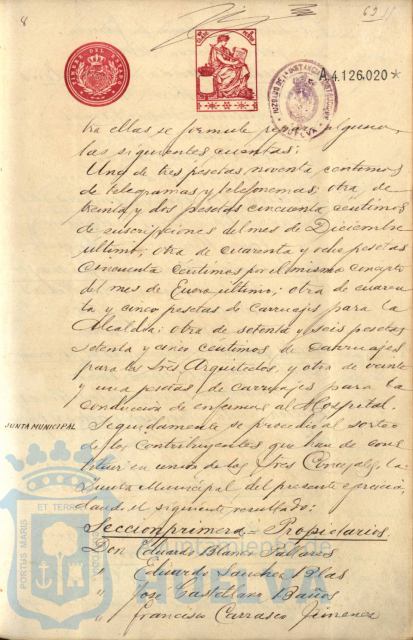 8
A 4.126.020*
TIMBRE DEL ESTADO
tra ellas se formule reparo alguno,
las siguientes cuentas:
Una de tres pesetas noventa centimos
de telegramas y telefonemas; otra de
treinta y dos pesetas cincuenta centimos
de suscripciones del mes de Diciembre
ultimo; otra de cuarenta y ocho pesetas
cincuenta centimos por el mismo concepto
del mes de Enero ultimo; otra de cuaren
ta y cinco pesetas de carruajes para la
Alcaldia; otra de setenta y seis pesetas
setenta y cinco centimos de carruajes
para los Sres Arquitectos, y otra de veinte
y una pesetas de carruajes para la
conducción de enfermos al Hospital.
JUNTA MUNICIPAL
Seguidamente se procedio al sorteo
de los Contribuyentes que han de cons
tituir en union de los Sres Concejales, la
Junta Municipal del presente ejercicio,
dando el siguiente resultado:
Seccion primera = Propietarios.
Don Eduardo Blanco
" Eduardo Sanchez Blas
" José Castellano Baños
" Francisco Carrasco Jimenez
PORTUS MARIS ET TERRAE
HUELVA